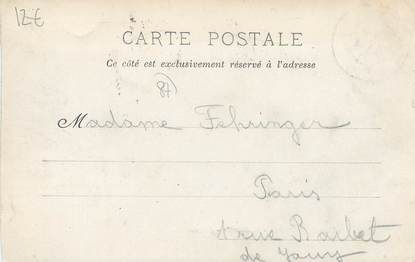 12€
CARTE POSTALE
Ce côté est exclusivement réservé à l'adresse
87
Madame Fehringer
Paris
rue Barbet
de Jouy